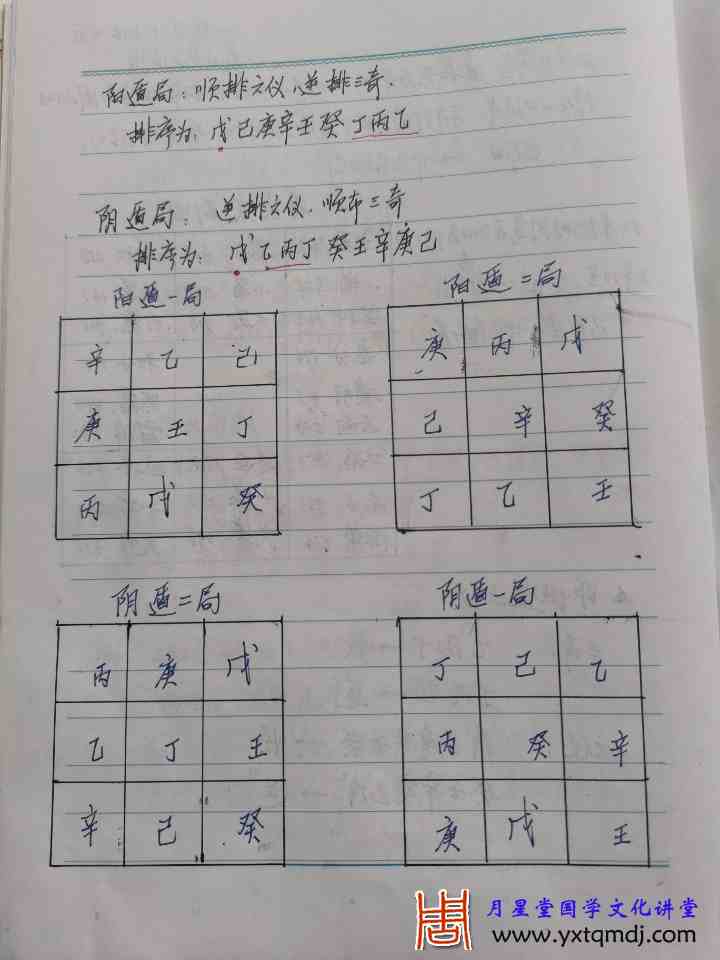 阳遁局：顺排六仪，逆排三奇.
排序为：戊己庚辛壬癸丁丙乙
阴遁局：逆排六仪.顺布三奇
排序为：戊乙丙丁癸壬辛庚己
阳遁一局
辛 乙 己
庚 壬 丁
丙 戊 癸
阳遁二局
庚 丙 戊
己 辛 癸
丁 乙 壬
阴遁二局
丙 庚 戊
乙 丁 壬
辛 己 癸
阴遁一局
丁 己 乙
丙 癸 辛
庚 戊 壬
月星堂国学文化讲堂
www.yxtqmdj.com